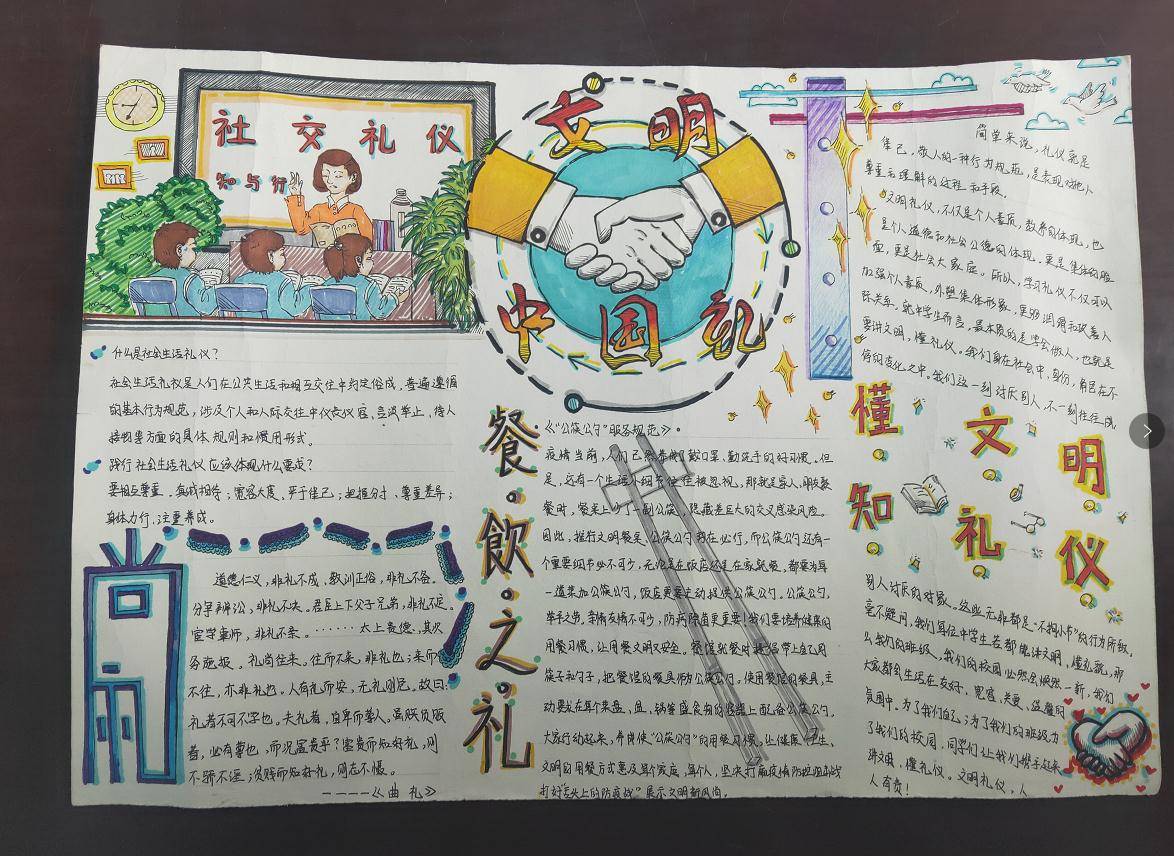 社交礼仪
知与行
文明
中国礼
什么是社会生活礼仪？
社会生活礼仪是人们在公共生活和相互交往中约定俗成、普遍遵循
的基本行为规范，涉及个人和人际交往中仪表仪容、言谈举止、待人
接物等方面的具体规则和惯用形式。
践行社会生活礼仪应该体现什么要求？
要相互尊重、真诚相待；宽容大度、严于律己；把握分寸、尊重差异；
身体力行、注重养成。
道德仁义，非礼不成，教训正俗，非礼不备。
分争辨讼，非礼不决。君臣上下父子兄弟，非礼不定。
宦学事师，非礼不亲。······太上贵德，其次
务施报。礼尚往来。往而不来，非礼也；来而
不往，亦非礼也。人有礼则安，无礼则危。故曰：
礼者不可不学也。夫礼者，自卑而尊人。虽
者，必有尊也，而况富贵乎？富贵而知好礼，则
不骄不淫；贫贱而知好礼，则志不慑。
----《曲礼》
餐·飲·之·礼
《“公筷公勺”服务规范》
疫情当前，人们已经养成了戴口罩、勤洗手的好习惯。但
是，还有一个生活小细节往往被忽视，那就是家人、朋友聚
餐时，餐桌上少了一副公筷，隐藏着巨大的交叉感染风险。
因此，推行文明餐桌、公筷公勺势在必行，而公筷公勺还有一
个重要细节必不可少，无论是在饭店还是在家就餐，都要为每
一道菜加公筷公勺，饭店更要主动提供公筷公勺。公筷公勺，
举手之劳，亲情友情不可少，防病除菌更重要！我们要培养健康的
用餐习惯，让用餐文明又安全。餐馆就餐时提倡带上自己用
筷子和勺子，把餐馆的餐具作为公筷公勺。使用餐馆的餐具，主
动要求在每个菜盘、皿、锅等盛食物的器皿上配备公筷公勺。
大家行动起来，养成使“公筷公勺”的用餐习惯，让健康、卫生、
文明的用餐方式惠及每个家庭，每个人，坚决打赢疫情防控阻击战
打好舌尖上的防疫战”展示文明新风尚。
简单来说，礼仪就是
律己、敬人的一种行为规范，是表现对他人
尊重和理解的过程和手段。
文明礼仪，不仅是个人素质，教养的体现，也
是个人道德和社会公德的体现。更是集体的脸
面，更是社会大家庭。所以，学习礼仪不仅可以
加强个人素质，外塑集体形象，更够润滑和改善人
际关系。就中学生而言，最本质的是学会做人，也就是
要讲文明，懂礼仪。我们身在社会中，身份，角色在不
停的变化之中。我们这一刻讨厌别人，不一刻往往成
懂文明
知礼仪
别人讨厌的对象。这些无非都是“不拘小节”的行为所致。
毫不疑问，我们每位中学生若都能讲文明，懂礼貌，那
么我们的班级、我们的校园必然会焕然一新，我们
大家都会生活在友好、宽容、关爱、温馨的
氛围中。为了我们自己；为了我们的班级为
了我们的校园，同学们让我们携手起来
讲文明，懂礼仪。文明礼仪，人
人有责！